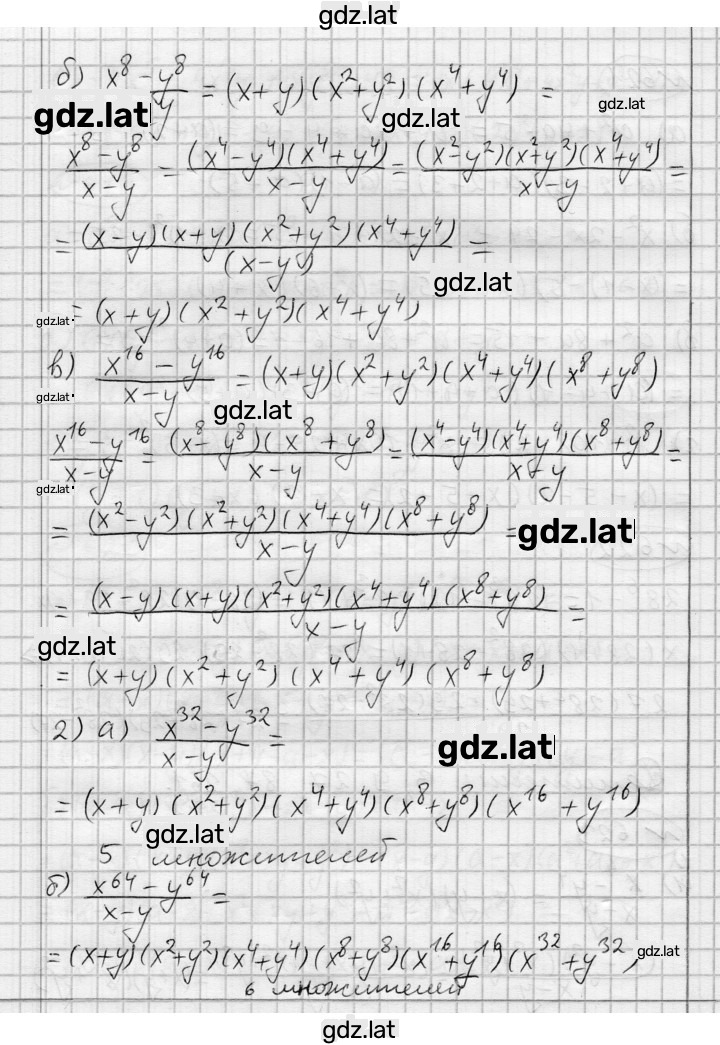 gdz.lat
б) (x⁸ − y⁸)/(x − y) = (x + y)(x² + y²)(x⁴ + y⁴) =
gdz.lat gdz.lat gdz.lat
(x⁸ − y⁸)/(x − y) = ((x⁴ − y⁴)(x⁴ + y⁴))/(x − y) = ((x² − y²)(x² + y²)(x⁴ + y⁴))/(x − y) =
= ((x − y)(x + y)(x² + y²)(x⁴ + y⁴))/(x − y) =
gdz.lat
gdz.lat = (x + y)(x² + y²)(x⁴ + y⁴)
в) (x¹⁶ − y¹⁶)/(x − y) = (x + y)(x² + y²)(x⁴ + y⁴)(x⁸ + y⁸)
gdz.lat gdz.lat
(x¹⁶ − y¹⁶)/(x − y) = ((x⁸ − y⁸)(x⁸ + y⁸))/(x − y) = ((x⁴ − y⁴)(x⁴ + y⁴)(x⁸ + y⁸))/(x − y) =
gdz.lat
= ((x² − y²)(x² + y²)(x⁴ + y⁴)(x⁸ + y⁸))/(x − y) = gdz.lat
= ((x − y)(x + y)(x² + y²)(x⁴ + y⁴)(x⁸ + y⁸))/(x − y) =
gdz.lat
= (x + y)(x² + y²)(x⁴ + y⁴)(x⁸ + y⁸)
2) а) (x³² − y³²)/(x − y) =
gdz.lat
= (x + y)(x² + y²)(x⁴ + y⁴)(x⁸ + y⁸)(x¹⁶ + y¹⁶)
gdz.lat
5 множителей
б) (x⁶⁴ − y⁶⁴)/(x − y) =
= (x + y)(x² + y²)(x⁴ + y⁴)(x⁸ + y⁸)(x¹⁶ + y¹⁶)(x³² + y³², gdz.lat
6 множителей
gdz.lat